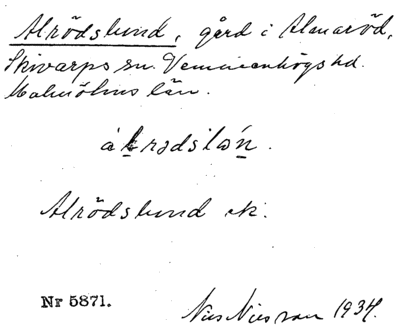 Alrödslund, gård i Almaröd,
Skivarps sn. Vemmenhögs hd.
Malmöhus län.
Alrödslund ek.
Nr 5871.
Nils Nilsson 1934.